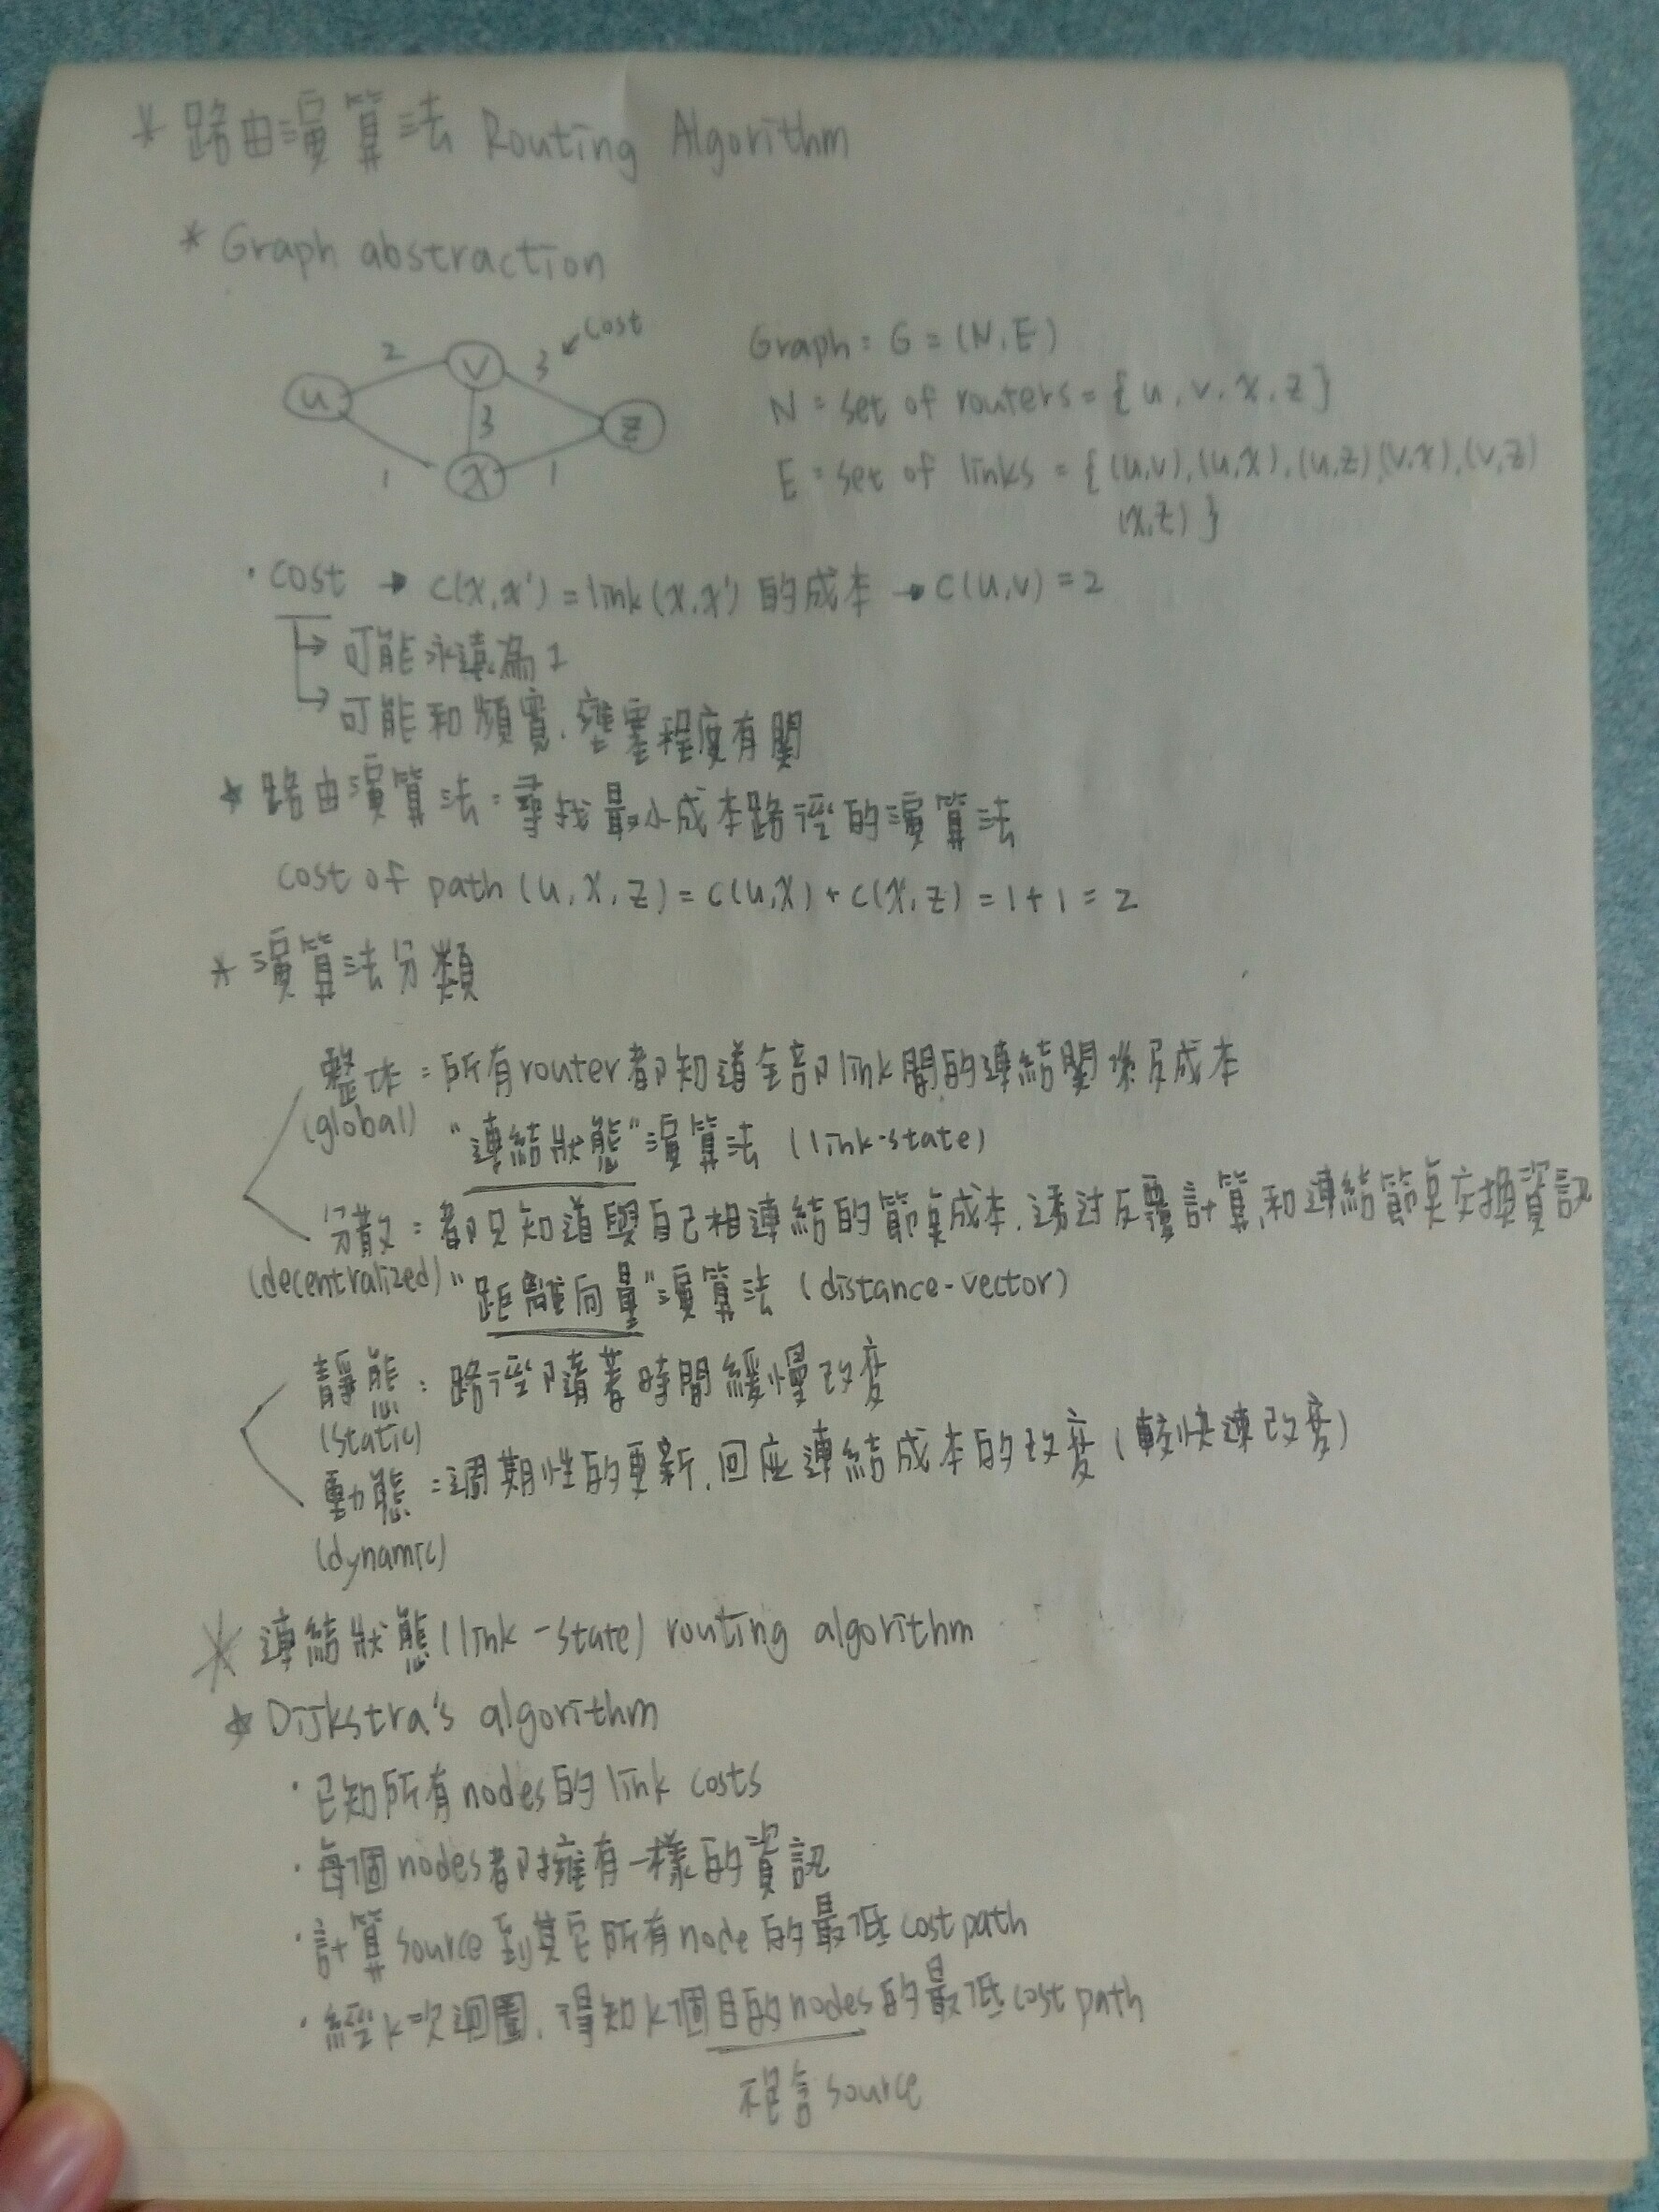 * 路由演算法 Routing Algorithm
* Graph abstraction
cost
2 v 3
u 3 z
1 x 1
Graph = G = (N, E)
N = set of routers = { u, v, x, z }
E = set of links = { (u,v), (u,x), (u,z), (v,x), (v,z)
(x,z) }
· cost → c(x,x') = link (x,x') 的成本 → c(u,v) = 2
↳ 可能永遠為1
↳ 可能和頻寬、壅塞程度有關
* 路由演算法 = 尋找最小成本路徑的演算法
cost of path (u, x, z) = c(u,x) + c(x,z) = 1 + 1 = 2
* 演算法分類
整体 = 所有router都知道全部link間的連結關係及成本
(global) "連結狀態"演算法 (link-state)
分散 = 都只知道與自己相連結的節點成本, 透过反覆計算, 和連結節點交換資訊
(decentralized) "距離向量"演算法 (distance-vector)
靜態 : 路徑隨著時間緩慢改變
(static)
動態 = 週期性的更新, 回应連結成本的改變 (較快速改變)
(dynamic)
* 連結狀態 (link-state) routing algorithm
* Dijkstra's algorithm
· 已知所有nodes的link costs
· 每個nodes都擁有一樣的資訊
· 計算source到其它所有node的最低cost path
· 經k次迴圈, 得知k個目的nodes的最低cost path
不包含source